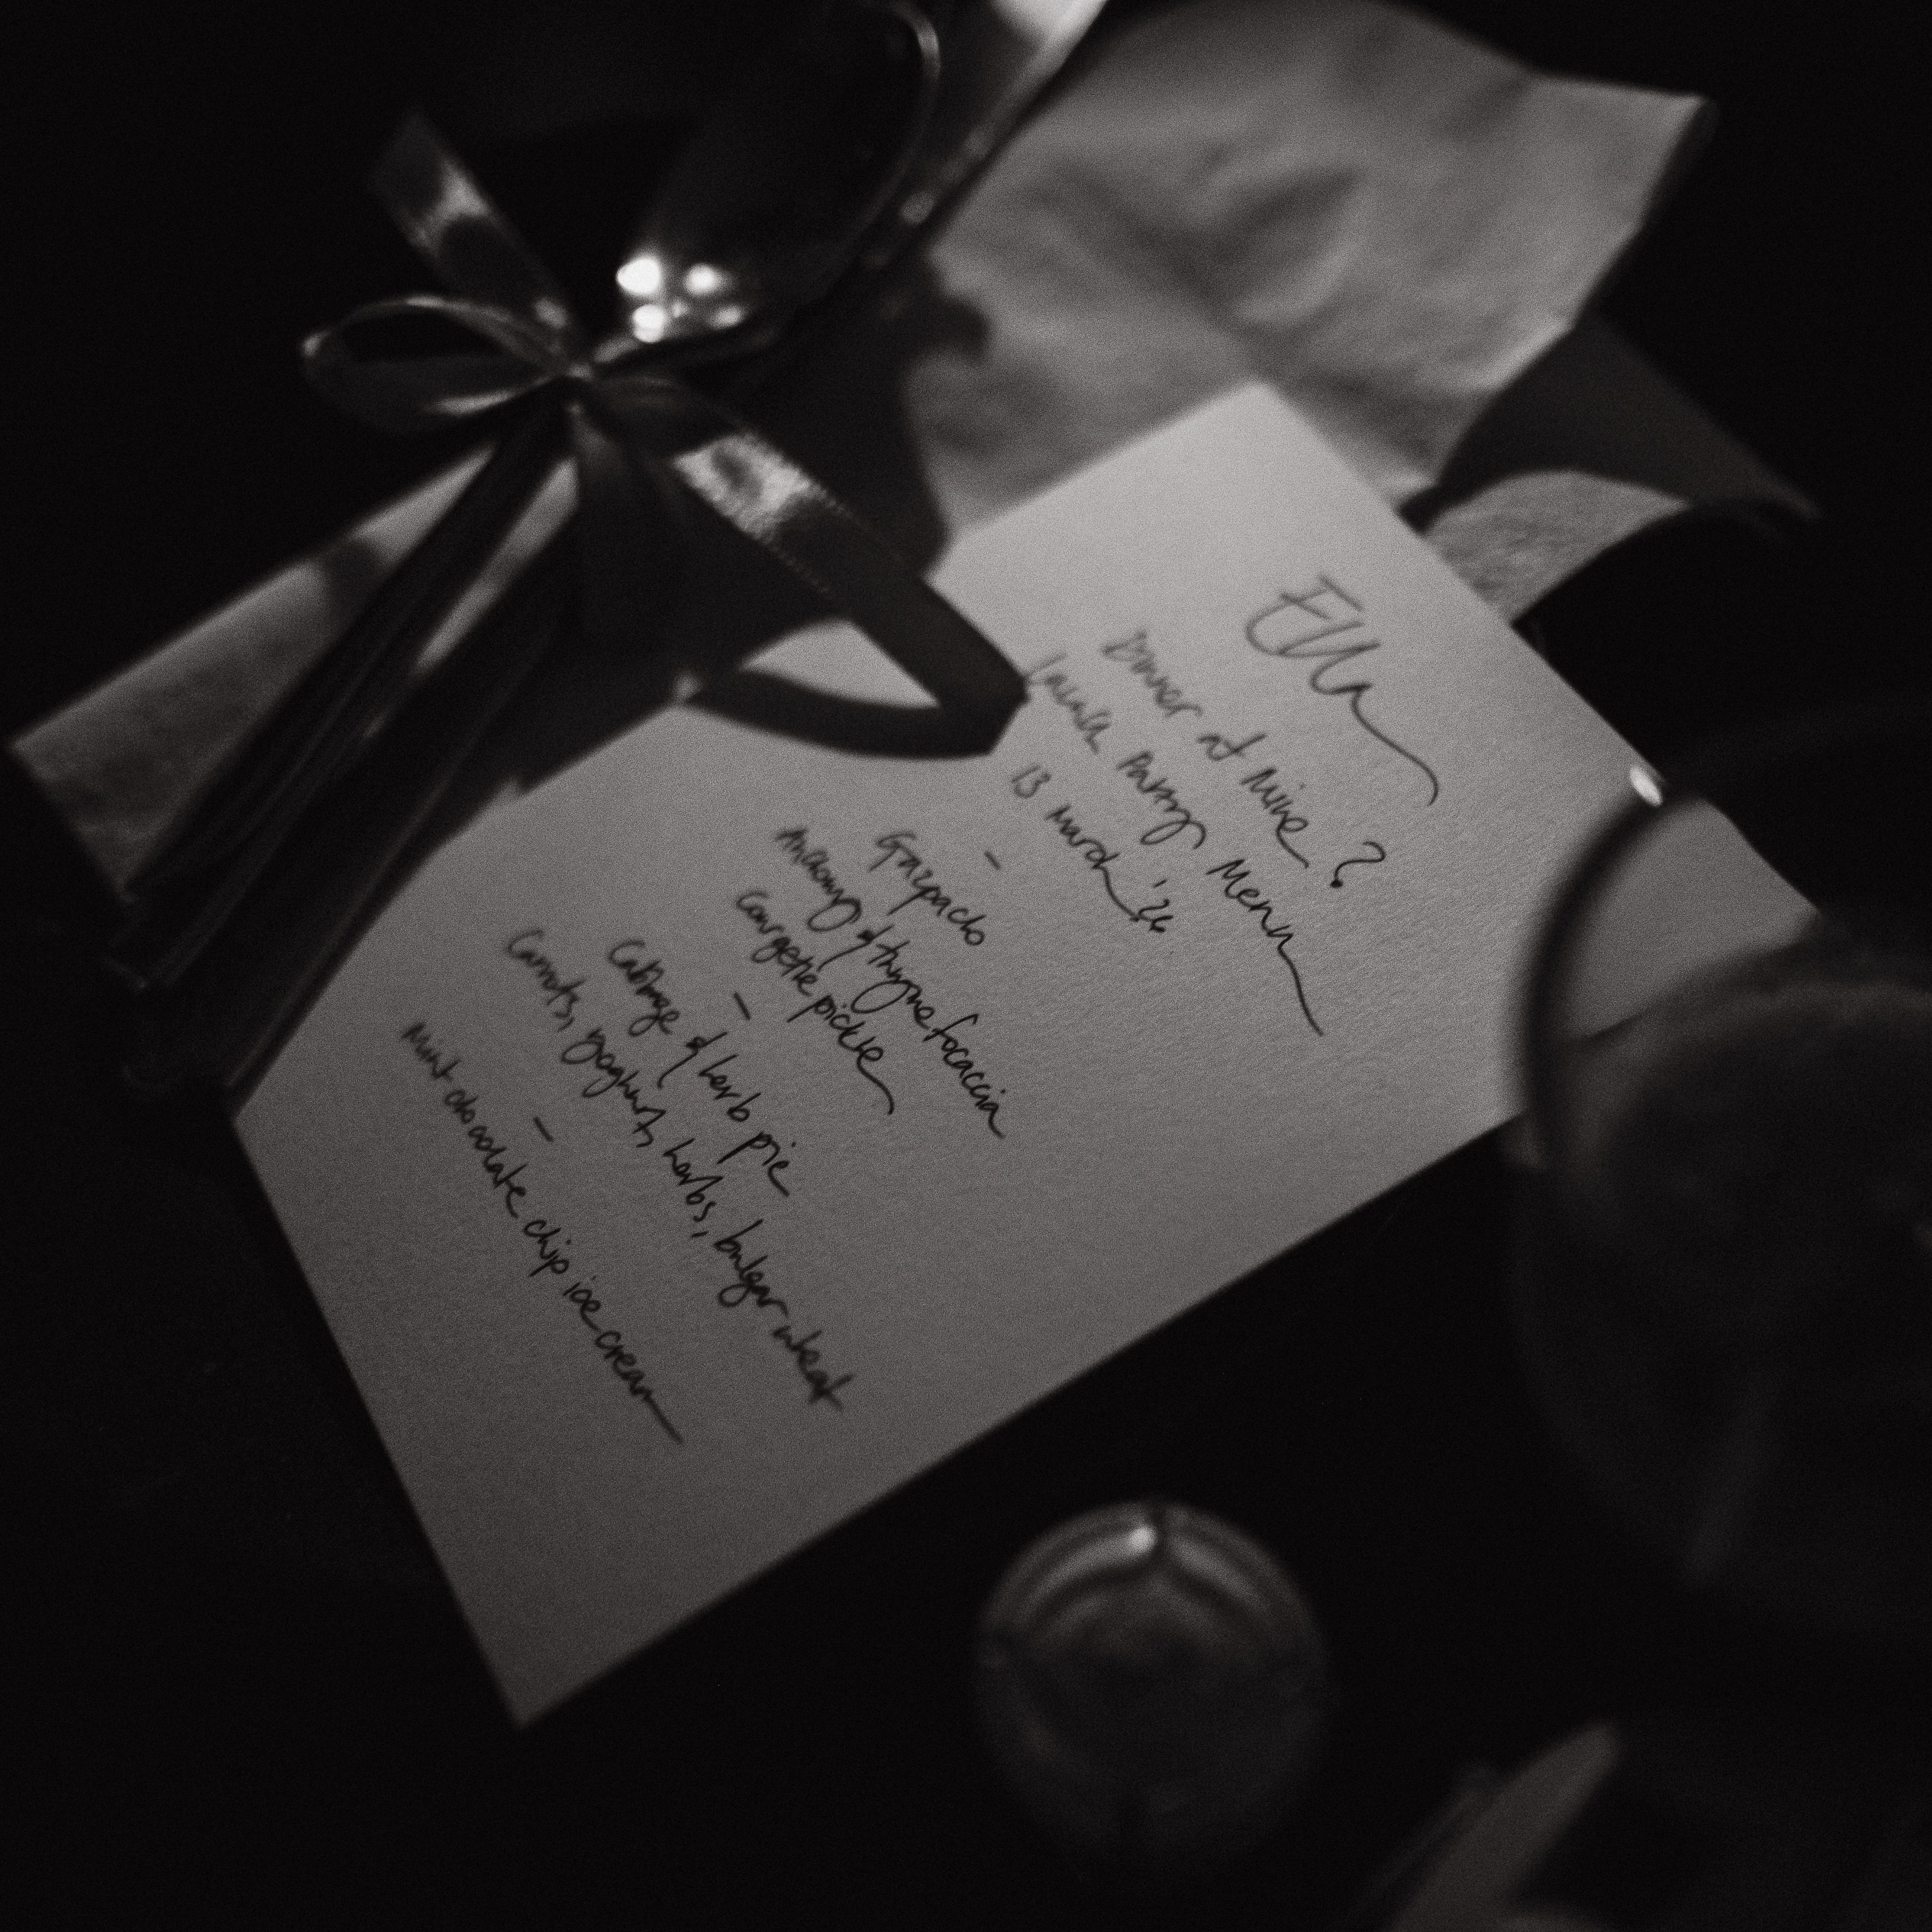 Ella
Dinner at Mine?
launch party Menu
13 March '26
-
Gazpacho
Anchovy & thyme focaccia
Courgette pickle
-
Cabbage & herb pie
Carrots, yoghurt, herbs, bulgar wheat
-
Mint chocolate chip ice cream